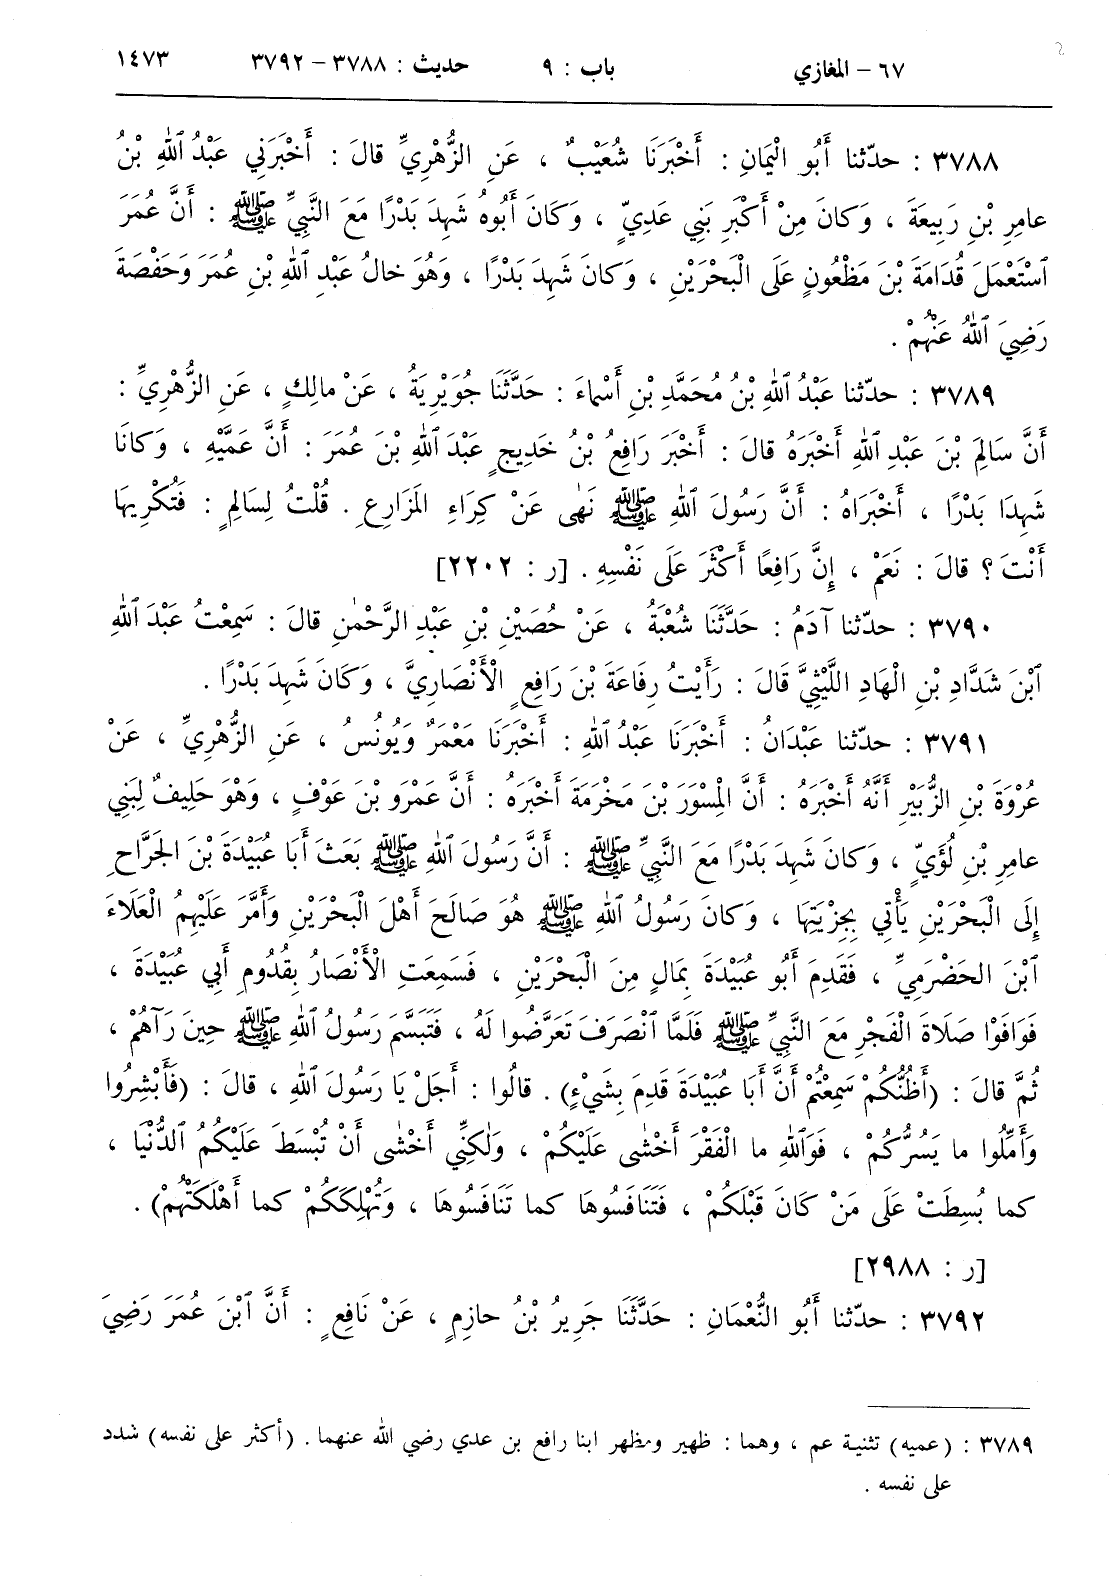 ٦٧ – المغازي باب : ٩ حديث : ٣٧٨٨ – ٣٧٩٢ ١٤٧٣
٣٧٨٨ : حدّثنا أَبُو الْيَمَانِ : أَخْبَرَنَا شُعَيْبٌ ، عَنِ الزُّهْرِيِّ قالَ : أَخْبَرَنِي عَبْدُ ٱللهِ بْنُ
عامِرِ بْنِ رَبِيعَةَ ، وَكانَ مِنْ أَكْبَرِ بَنِي عَدِيٍّ ، وَكَانَ أَبُوهُ شَهِدَ بَدْرًا مَعَ النَّبِيِّ ﷺ : أَنَّ عُمَرَ
ٱسْتَعْمَلَ قُدَامَةَ بْنَ مَظْعُونٍ عَلَى الْبَحْرَيْنِ ، وَكانَ شَهِدَ بَدْرًا ، وَهُوَ خالُ عَبْدِ ٱللهِ بْنِ عُمَرَ وَحَفْصَةَ
رَضِيَ ٱللهُ عَنْهُمْ .
٣٧٨٩ : حدّثنا عَبْدُ ٱللهِ بْنُ مُحَمَّدِ بْنِ أَسْماءَ : حَدَّثَنَا جُوَيْرِيَةُ ، عَنْ مالِكٍ ، عَنِ الزُّهْرِيِّ :
أَنَّ سَالِمَ بْنَ عَبْدِ ٱللهِ أَخْبَرَهُ قالَ : أَخْبَرَ رَافِعُ بْنُ خَدِيجٍ عَبْدَ ٱللهِ بْنَ عُمَرَ : أَنَّ عَمَّيْهِ ، وَكانَا
شَهِدَا بَدْرًا ، أَخْبَرَاهُ : أَنَّ رَسُولَ ٱللهِ ﷺ نَهٰى عَنْ كِرَاءِ المَزَارِعِ . قُلْتُ لِسَالِمٍ : فَتُكْرِيهَا
أَنْتَ ؟ قالَ : نَعَمْ ، إِنَّ رَافِعًا أَكْثَرَ عَلَى نَفْسِهِ . [ر : ٢٢٠٢]
٣٧٩٠ : حدّثنا آدَمُ : حَدَّثَنَا شُعْبَةُ ، عَنْ حُصَيْنِ بْنِ عَبْدِ الرَّحْمٰنِ قالَ : سَمِعْتُ عَبْدَ ٱللهِ
ٱبْنَ شَدَّادِ بْنِ الْهَادِ اللَّيْثِيَّ قَالَ : رَأَيْتُ رِفَاعَةَ بْنَ رَافِعٍ الْأَنْصَارِيَّ ، وَكَانَ شَهِدَ بَدْرًا .
٣٧٩١ : حدّثنا عَبْدَانُ : أَخْبَرَنَا عَبْدُ ٱللهِ : أَخْبَرَنَا مَعْمَرٌ وَيُونُسُ ، عَنِ الزُّهْرِيِّ ، عَنْ
عُرْوَةَ بْنِ الزُّبَيْرِ أَنَّهُ أَخْبَرَهُ : أَنَّ الْمِسْوَرَ بْنَ مَخْرَمَةَ أَخْبَرَهُ : أَنَّ عَمْرَو بْنَ عَوْفٍ ، وَهْوَ حَلِيفٌ لِبَنِي
عامِرِ بْنِ لُؤَيٍّ ، وَكانَ شَهِدَ بَدْرًا مَعَ النَّبِيِّ ﷺ : أَنَّ رَسُولَ ٱللهِ ﷺ بَعَثَ أَبَا عُبَيْدَةَ بْنَ الجَرَّاحِ
إِلَى الْبَحْرَيْنِ يَأْتِي بِجِزْيَتِهَا ، وَكانَ رَسُولُ ٱللهِ ﷺ هُوَ صَالَحَ أَهْلَ الْبَحْرَيْنِ وَأَمَّرَ عَلَيْهِمُ الْعَلَاءَ
ٱبْنَ الحَضْرَمِيِّ ، فَقَدِمَ أَبُو عُبَيْدَةَ بِمَالٍ مِنَ الْبَحْرَيْنِ ، فَسَمِعَتِ الْأَنْصَارُ بِقُدُومِ أَبِي عُبَيْدَةَ ،
فَوَافَوْا صَلَاةَ الْفَجْرِ مَعَ النَّبِيِّ ﷺ فَلَمَّا ٱنْصَرَفَ تَعَرَّضُوا لَهُ ، فَتَبَسَّمَ رَسُولُ ٱللهِ ﷺ حِينَ رَآهُمْ ،
ثُمَّ قالَ : (أَظُنُّكُمْ سَمِعْتُمْ أَنَّ أَبَا عُبَيْدَةَ قَدِمَ بِشَيْءٍ) . قالُوا : أَجَلْ يَا رَسُولَ ٱللهِ ، قالَ : (فَأَبْشِرُوا
وَأَمِّلُوا ما يَسُرُّكُمْ ، فَوَٱللهِ ما الْفَقْرَ أَخْشٰى عَلَيْكُمْ ، وَلٰكِنِّي أَخْشٰى أَنْ تُبْسَطَ عَلَيْكُمُ ٱلدُّنْيَا ،
كما بُسِطَتْ عَلَى مَنْ كَانَ قَبْلَكُمْ ، فَتَنَافَسُوهَا كما تَنَافَسُوهَا ، وَتُهْلِكَكُمْ كما أَهْلَكَتْهُمْ) .
[ر : ٢٩٨٨]
٣٧٩٢ : حدّثنا أَبُو النُّعْمَانِ : حَدَّثَنَا جَرِيرُ بْنُ حازِمٍ ، عَنْ نَافِعٍ : أَنَّ ٱبْنَ عُمَرَ رَضِيَ
٣٧٨٩ : (عميه) تثنية عم ، وهما : ظهير ومظهر ابنا رافع بن عدي رضي الله عنهما . (أكثر على نفسه) شدد
على نفسه .